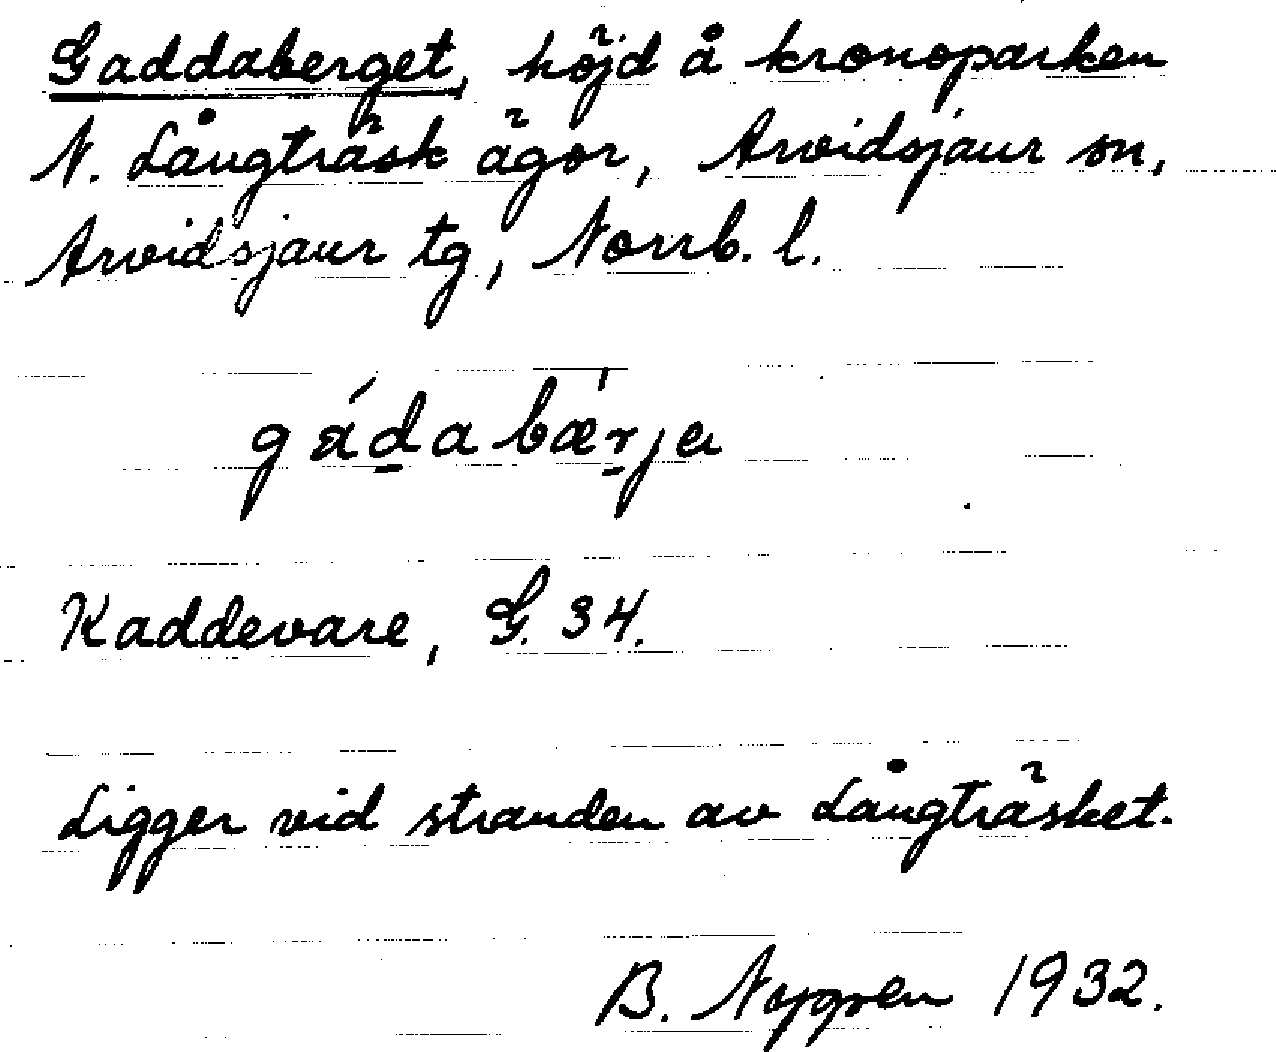 Gaddaberget, höjd å kronoparken
N. Långträsk ägor, Arvidsjaur sn,
Arvidsjaur tg, Norrb. l.
gádabǽrja
Kaddevare, G. 34.
Ligger vid stranden av Långträsket.
B. Nygren 1932.